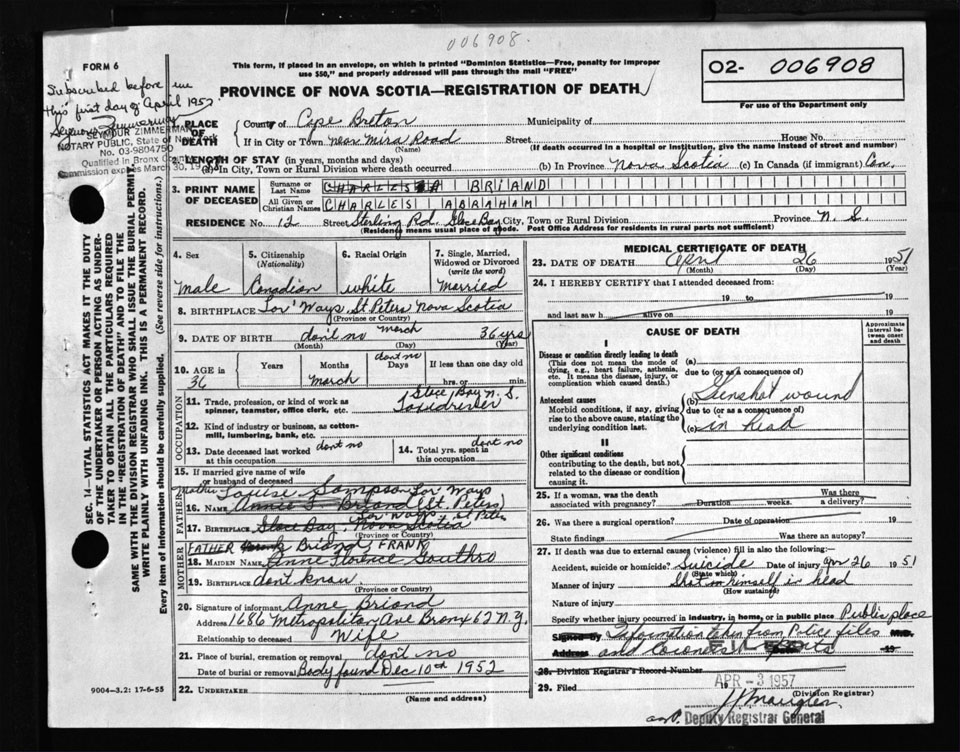 006908.
FORM 6
This form, if placed in an envelope, on which is printed "Dominion Statistics—Free, penalty for improper
use $50," and properly addressed will pass through the mail "FREE"
02- 006908
For use of the Department only
PROVINCE OF NOVA SCOTIA—REGISTRATION OF DEATH
Subscribed before me
this first day of April 1957.
Seymour Zimmerman
SEYMOUR ZIMMERMAN
NOTARY PUBLIC, State of New York
No. 03-9804750
Qualified in Bronx
Commission expires March 30, 19
1. PLACE OF DEATH
County of Cape Breton Municipality of
If in City or Town near Mira Road Street House No.
(Name) (If death occurred in a hospital or institution, give the name instead of street and number)
2. LENGTH OF STAY (in years, months and days)
(a) In City, Town or Rural Division where death occurred (b) In Province Nova Scotia (c) In Canada (if immigrant) Can.
3. PRINT NAME OF DECEASED
Surname or Last Name CHARLES A BRIAND
All Given or Christian Names CHARLES ABRAHAM
RESIDENCE No. 12 Street Sterling Rd. Glace Bay City, Town or Rural Division Province N. S.
(Residence means usual place of abode. Post Office Address for residents in rural parts not sufficient)
4. Sex
male
5. Citizenship (Nationality)
Canadian
6. Racial Origin
white
7. Single, Married, Widowed or Divorced (write the word)
Married
8. BIRTHPLACE Ways St Peters Nova Scotia
(Province or Country)
9. DATE OF BIRTH don't no march 36 yrs
(Month) (Day) (Year)
10. AGE in Years Months Days If less than one day old
36 March dont no hrs. or min.
OCCUPATION
11. Trade, profession, or kind of work as spinner, teamster, office clerk, etc. Glace Bay N. S.
12. Kind of industry or business, as cotton-mill, lumbering, bank, etc.
13. Date deceased last worked at this occupation dont no
14. Total yrs. spent in this occupation dont no
15. If married give name of wife or husband of deceased
FATHER
Mother Louise Sampson Ways
16. NAME Annie Briand (St. Peters)
17. BIRTHPLACE Glace Bay, Nova Scotia
(Province or Country)
MOTHER
FATHER Briand, FRANK
18. MAIDEN NAME Anne Florence Southro
19. BIRTHPLACE don't know
(Province or Country)
20. Signature of informant Anne Briand
Address 1686 Metropolitan Ave Bronx 62 N.Y.
Relationship to deceased Wife
21. Place of burial, cremation or removal don't no
Date of burial or removal Body found Dec 10th 1952
22. UNDERTAKER
(Name and address)
9004-3.2: 17-6-55
MEDICAL CERTIFICATE OF DEATH
23. DATE OF DEATH April 26 1951
(Month) (Day) (Year)
24. I HEREBY CERTIFY that I attended deceased from:
19 to 19
and last saw h alive on 19
CAUSE OF DEATH
Approximate interval between onset and death
I
Disease or condition directly leading to death
(This does not mean the mode of dying, e.g., heart failure, asthenia, etc. It means the disease, injury, or complication which caused death.)
(a)
due to (or as a consequence of)
Antecedent causes
Morbid conditions, if any, giving rise to the above cause, stating the underlying condition last.
(b) Gunshot wound
due to (or as a consequence of)
(c) in head
II
Other significant conditions
contributing to the death, but not related to the disease or condition causing it.
25. If a woman, was the death associated with pregnancy? Duration weeks. Was there a delivery?
26. Was there a surgical operation? Date of operation
State findings Was there an autopsy?
27. If death was due to external causes (violence) fill in also the following:—
Accident, suicide or homicide? Suicide Date of injury Apr 26 1951
(State which)
Manner of injury Shot himself in head
(How sustained)
Nature of injury
Specify whether injury occurred in industry, in home, or in public place Public place
Signed by Information taken from Police files
Address and Coroner's 19
28. Division Registrar's Record Number
29. Filed APR - 3 1957
(Division Registrar)
Deputy Registrar General
SEC. 14—VITAL STATISTICS ACT MAKES IT THE DUTY
OF THE UNDERTAKER OR PERSON ACTING AS UNDER-
TAKER TO OBTAIN ALL THE PARTICULARS REQUIRED
IN THE "REGISTRATION OF DEATH" AND TO FILE THE
SAME WITH THE DIVISION REGISTRAR WHO SHALL ISSUE THE BURIAL PERMIT.
WRITE PLAINLY WITH UNFADING INK. THIS IS A PERMANENT RECORD.
Every item of information should be carefully supplied. (See reverse side for instructions.)